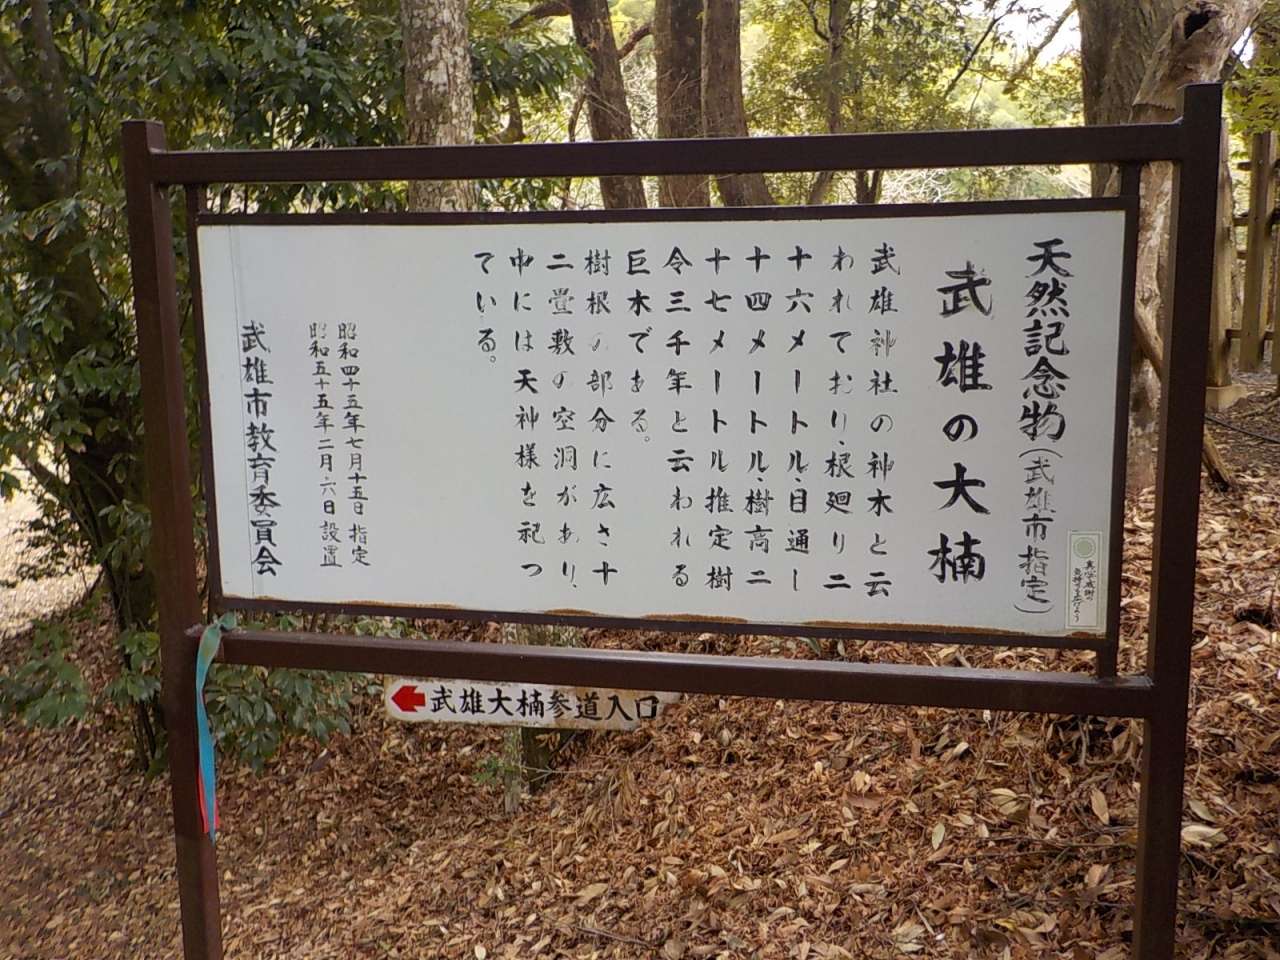 天然記念物(武雄市指定)
武雄の大楠
武雄神社の神木と云
われており、根廻り二
十六メートル、目通し
十四メートル、樹高二
十七メートル推定樹
令三千年と云われる
巨木である。
樹根の部分に広さ十
二畳敷の空洞があり、
中には天神様を祀っ
ている。
昭和四十五年七月十五日指定
昭和五十五年二月六日設置
武雄市教育委員会
武雄大楠参道入口